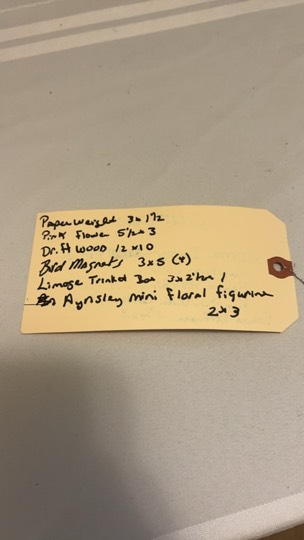 Paperweight 3x1½
Pink flower 5½x3
Drift wood 12x10
Bird Magnets 3x5 (4)
Limoge Trinket Box 3x2½x1
Aynsley mini floral figurine
2x3